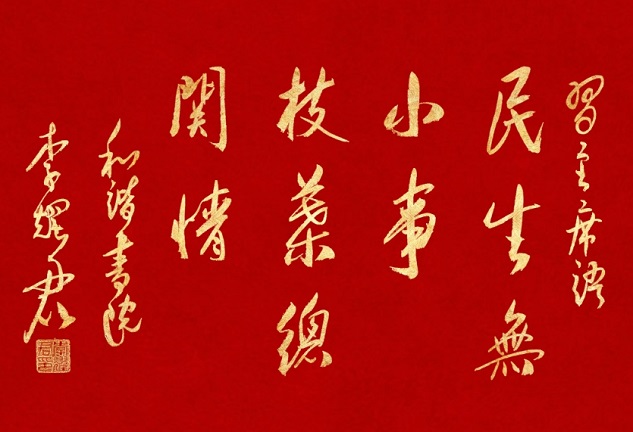 習主席語
民生無
小事
枝葉總
関情
和諧書院
李耀君